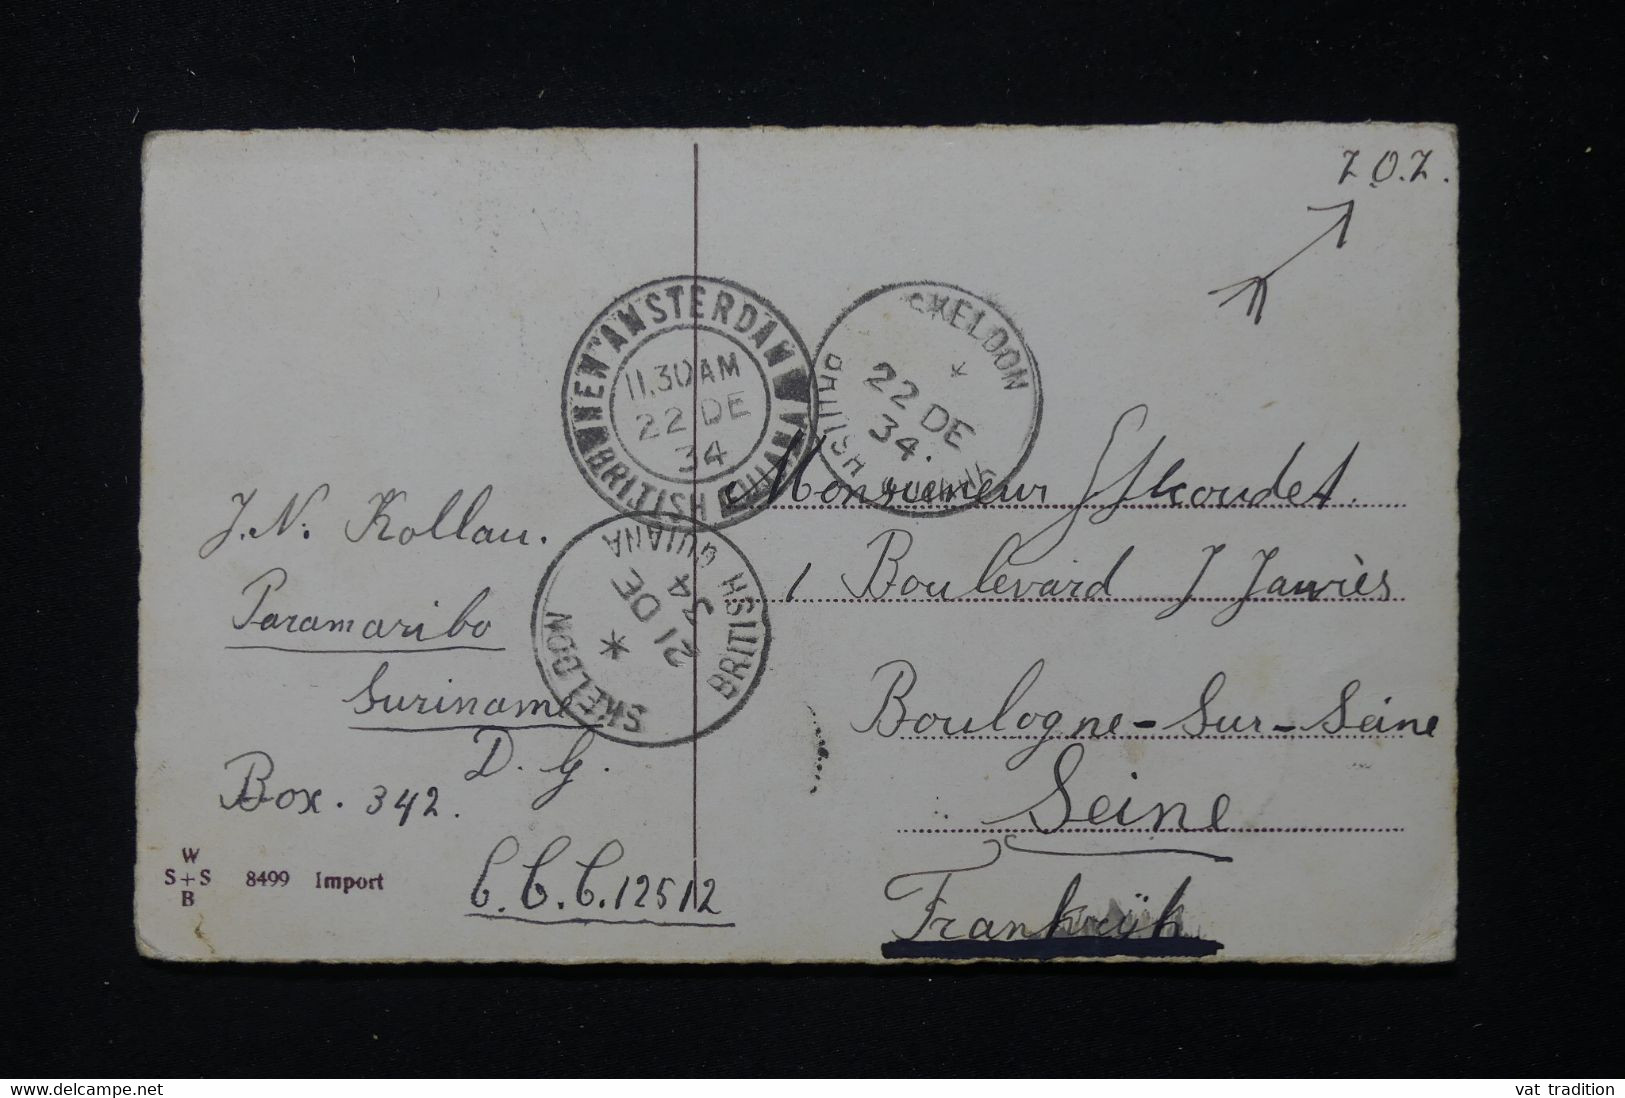 Z.O.Z.
NEW AMSTERDAM
11.30AM
22 DE
34
BRITISH GUIANA
SKELDON
*
22 DE
34.
BRITISH GUIANA
BRITISH GUIANA
21 DE
34
*
SKELDON
J. N. Kollau.
Paramaribo
Suriname
D. G.
Box. 342.
C.C.C. 12512
W
S+S 8499 Import
B
Monsieur
1 Boulevard J Jaurès
Boulogne-Sur-Seine
Seine
Frankrijk
www.delcampe.net
vat_tradition